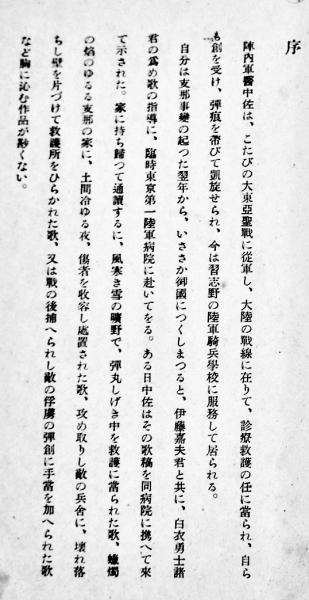 序
陣內軍醫中佐は、こたびの大東亞聖戰に從軍し、大陸の戰線に在りて、診療救護の任に當られ、自ら
も創を受け、彈痕を帶びて凱旋せられ、今は習志野の陸軍騎兵學校に服務して居られる。
自分は支那事變の起つた翌年から、いささか御國につくしまつると、伊藤嘉夫君と共に、白衣勇士諸
君の爲め歌の指導に、臨時東京第一陸軍病院に赴いてをる。ある日中佐はその歌稿を同病院に携へて來
て示された。家に持ち歸つて通讀するに、風寒き雪の曠野で、彈丸しげき中を救護に當られた歌、蠟燭
の焰のゆるる支那の家に、土間冷ゆる夜、傷者を收容し處置された歌、攻め取りし敵の兵舍に、壞れ落
ちし壁を片づけて救護所をひらかれた歌、又は戰の後捕へられし敵の俘虜の彈創に手當を加へられた歌
など胸に沁む作品が尠くない。